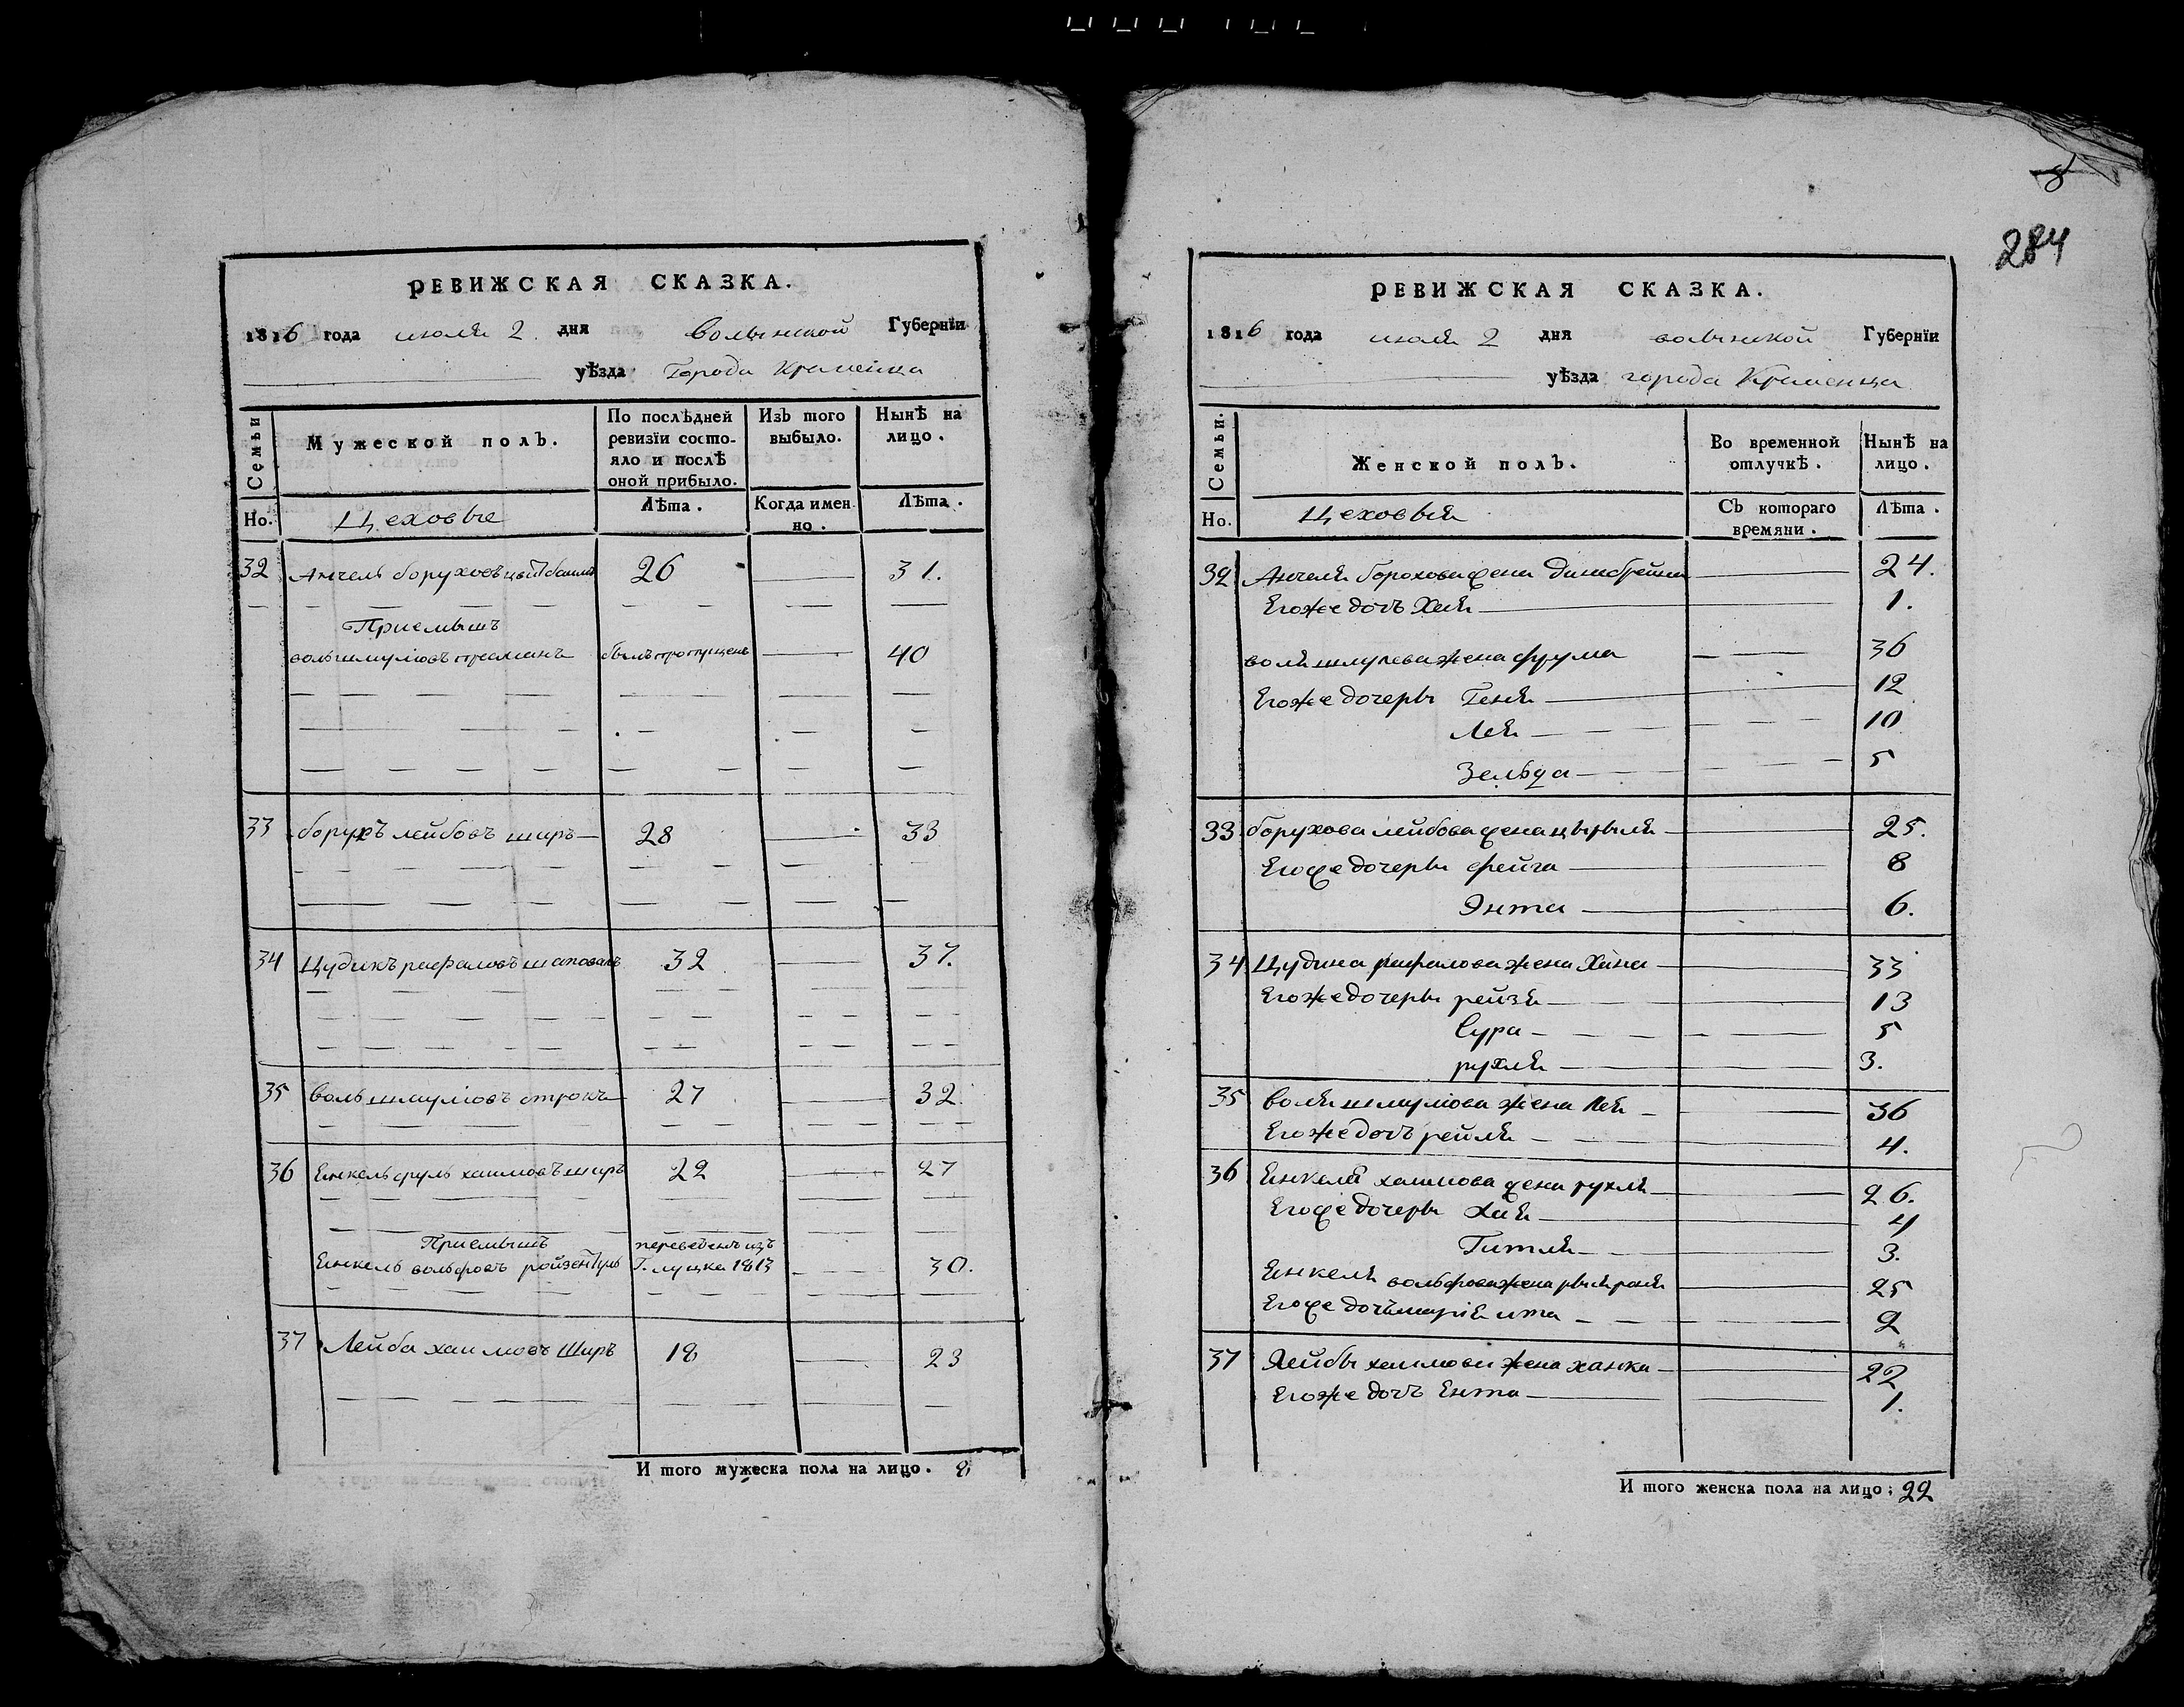 РЕВИЖСКАЯ СКАЗКА.
1816 года июля 2 дня Волынской Губернїи
уѣзда Города Кременца
Семьи
Мужеской полъ.
По послѣдней ревизїи состояло и послѣ оной прибыло.
Изъ того выбыло.
Нынѣ на лицо.
Но.
Цеховые
Лѣта.
Когда именно.
Лѣта.
32 Анчель борухов 26 31.
Приемышъ
воль шмулiовъ былъ пропущенъ 40
33 борухъ лейбовъ широ 28 33
34 Цудикъ рафаловъ шаповалъ 32 37.
35 воль шмулiовъ строкъ 27 32
36 Енкель сруль хаимовъ широ 22 27
Приемышъ переведенъ изъ
Енкель вольфовъ Г. луцка 1813 30.
37 Лейба хаимовъ Широ 18 23
И того мужеска пола на лицо. 8
8
284
РЕВИЖСКАЯ СКАЗКА.
1816 года июля 2 дня волынской Губернїи
уѣзда города Кременца
Семьи.
Женской полъ.
Во временной отлучкѣ.
Нынѣ на лицо.
Но.
Цеховыя
Съ котораго времяни.
Лѣта.
32 Анчеля борохова жена 24.
Его же дочъ Хая 1.
воля шмулева жена фрума 36
Его же дочеры Геня 12
Лея 10
Зельда 5
33 борухова лейбова жена цывыля 25.
Его же дочеры фейга 8
Энта 6.
34 Цудика рафалова жена Хана 33
Его же дочеры рейзя 13
Сура 5
рухля 3.
35 воля шмулiова жена лея 36
Его же дочъ рейля 4.
36 Енкеля хаимова жена рухля 26.
Его же дочеры Хая 4
Гитля 3.
Енкеля вольфова жена 25
Его же дочъ 2
37 Лейбы хаимова жена ханка 22
Его же дочъ Ента 1.
И того женска пола на лицо; 22